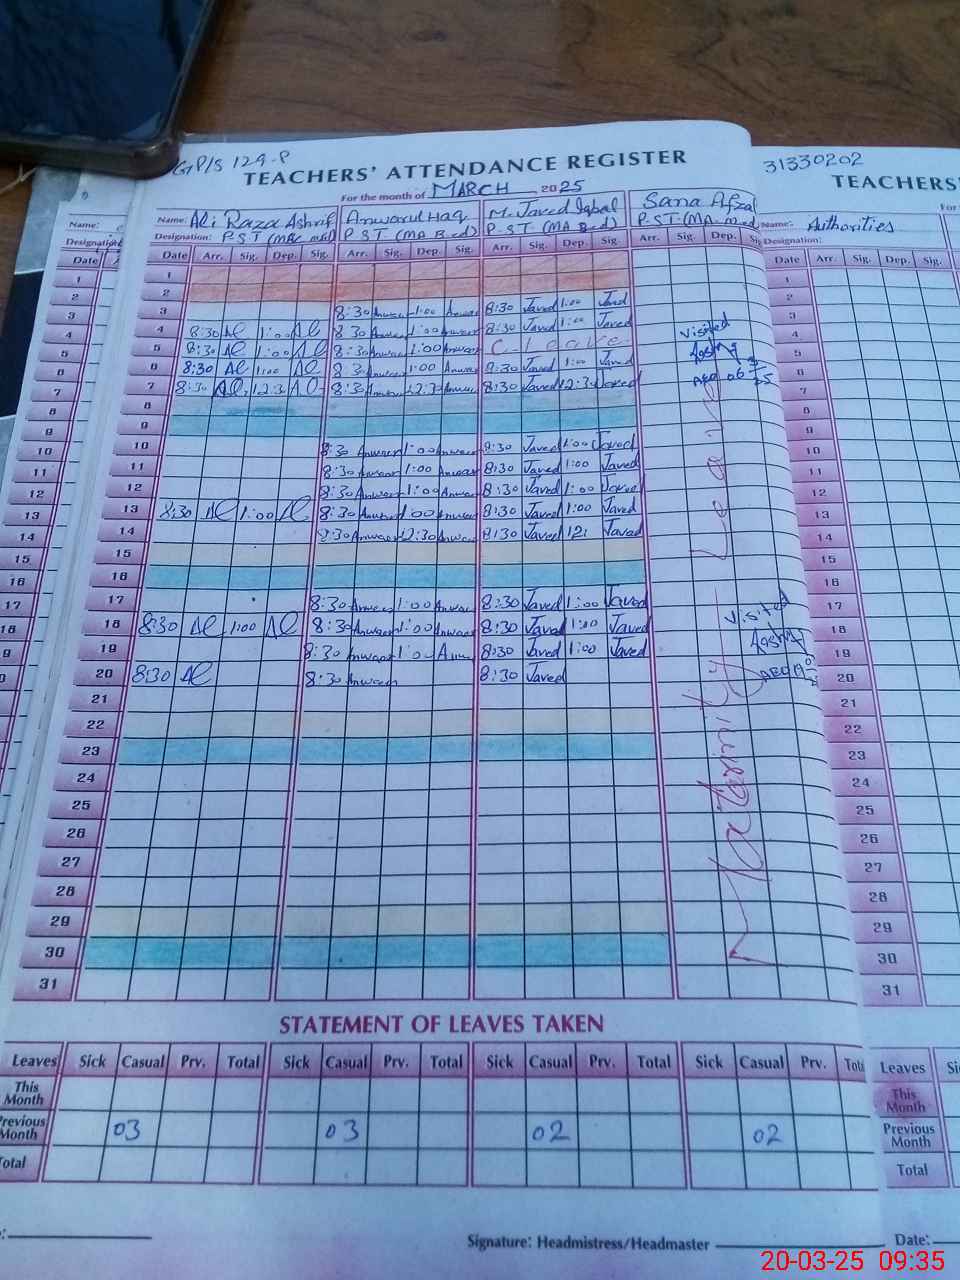 GP/S 129-P
TEACHERS' ATTENDANCE REGISTER
For the month of MARCH 2025
Name: Ali Raza Ashraf Anwarul Haq M. Javed Iqbal Sana Afzal
Designation: P.S.T P.S.T (MA B.ed) P.S.T (MA B.ed) P.S.T (MA. M.ed)
Date Arr. Sig. Dep. Sig. Arr. Sig. Dep. Sig. Arr. Sig. Dep. Sig Arr. Sig. Dep.
1
2
3 8:30 Anwar 1:00 Anwar 8:30 Javed 1:00 Javed
4 8:30 Al 1:00 Al 8:30 Anwar 1:00 Anwar 8:30 Javed 1:00 Javed
5 8:30 Al 1:00 Al 8:30 Anwar 1:00 Anwar C. Leave
6 8:30 Al 1:00 Al 8:30 Anwar 1:00 Anwar 8:30 Javed 1:00 Javed
7 8:30 Al 12:30 Al 8:30 Anwar 12:30 Anwar 8:30 Javed 12:30 Javed
8
9
10 8:30 Anwar 1:00 Anwar 8:30 Javed 1:00 Javed
11 8:30 Anwar 1:00 Anwar 8:30 Javed 1:00 Javed
12 8:30 Anwar 1:00 Anwar 8:30 Javed 1:00 Javed
13 8:30 Al 1:00 Al 8:30 Anwar 1:00 Anwar 8:30 Javed 1:00 Javed
14 8:30 Anwar 12:30 Anwar 8:30 Javed 12: Javed
15
16
17 8:30 Anwar 1:00 Anwar 8:30 Javed 1:00 Javed
18 8:30 Al 1:00 Al 8:30 Anwar 1:00 Anwar 8:30 Javed 1:00 Javed
19 8:30 Anwar 1:00 Anwar 8:30 Javed 1:00 Javed
20 8:30 Al 8:30 Anwar 8:30 Javed
21
22
23
24
25
26
27
28
29
30
31
Maternity Leave
Visited
AEO 06 3/25
Visited
AEO 19
STATEMENT OF LEAVES TAKEN
Leaves Sick Casual Prv. Total Sick Casual Prv. Total Sick Casual Prv. Total Sick Casual Prv.
This Month
Previous Month 03 03 02 02
Total
Signature: Headmistress/Headmaster
31330202
TEACHERS'
For
Name: Authorities
Designation:
Date Arr. Sig. Dep. Sig.
1
2
3
4
5
6
7
8
9
10
11
12
13
14
15
16
17
18
19
20
21
22
23
24
25
26
27
28
29
30
31
Leaves
This Month
Previous Month
Total
Date:
Name:
Date
1
2
3
4
5
6
7
8
9
10
11
12
13
14
15
16
17
18
20-03-25 09:35